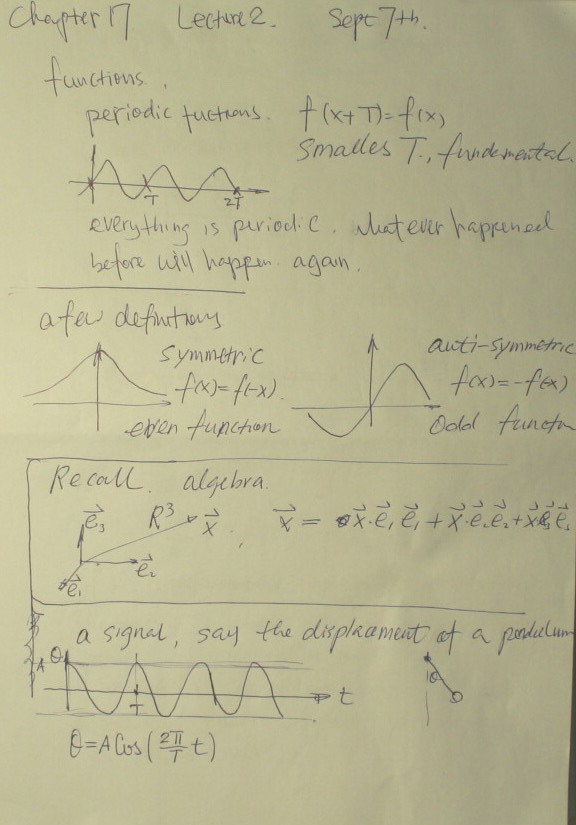 Chapter 17 Lecture 2. Sept 7th.
functions.
periodic fuctions. f(x+T)=f(x)
Smalles T., fundamental.
T 2T
everything is periodic. whatever happened
before will happen again.
a few definitions
symmetric
f(x)=f(-x).
even function
anti-symmetric
f(x)=-f(-x)
Odd functn
Recall. algebra.
e⃗₃ R³ x⃗
e⃗₂
e⃗₁
x⃗ = x⃗·e⃗₁ e⃗₁ + x⃗·e⃗₂ e⃗₂ + x⃗·e⃗₃ e⃗₃
a signal, say the displacement of a pendulum
A θ
T
t
θ
θ=A Cos(2π/T t)